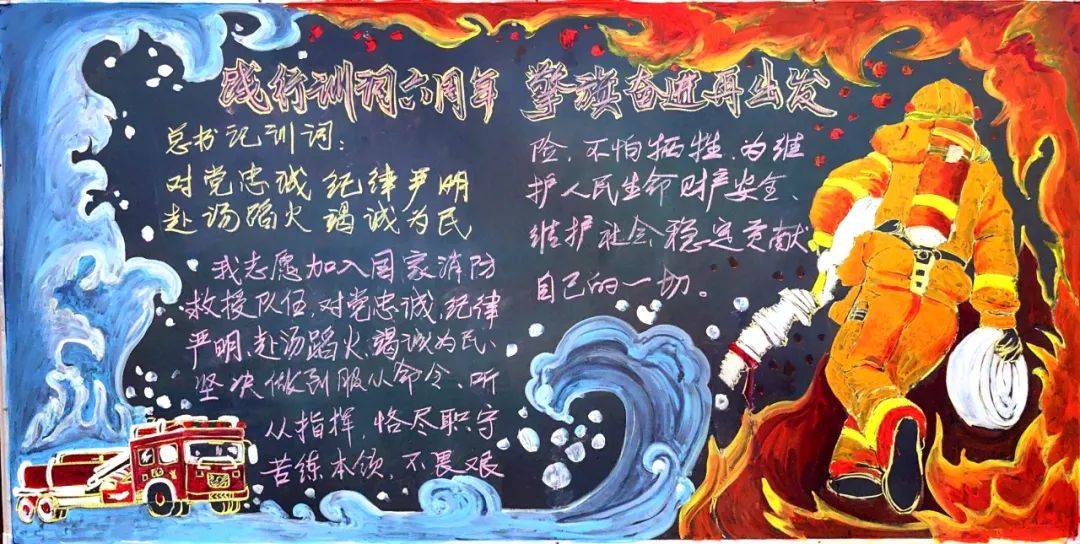 践行训词六周年 擎旗奋进再出发
总书记训词：
对党忠诚 纪律严明
赴汤蹈火 竭诚为民
我志愿加入国家消防
救援队伍，对党忠诚，纪律
严明、赴汤蹈火、竭诚为民、
坚决做到服从命令、听
从指挥，恪尽职守
苦练本领，不畏艰
险、不怕牺牲、为维
护人民生命财产安全、
维护社会稳定贡献
自己的一切。